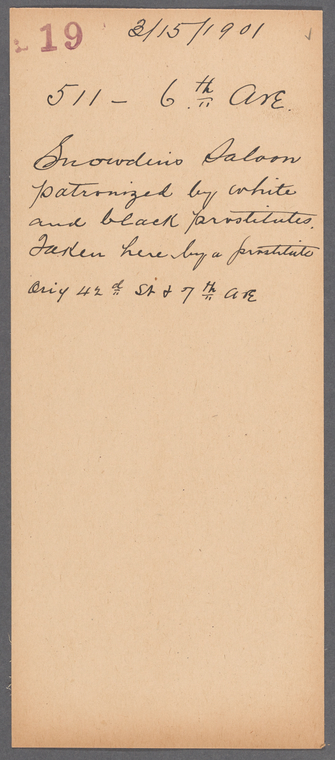 19 3/15/1901
511 - 6th Ave.
Snowdins Saloon
patronized by white
and black prostitutes.
Taken here by a prostitute
42d St & 7th Ave